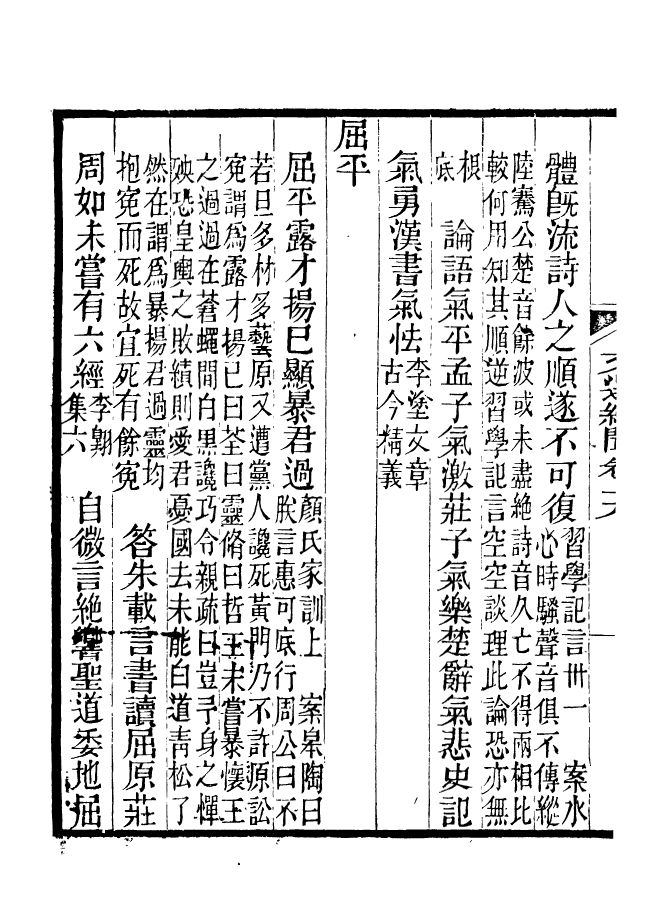 文選紀聞卷
體旣流詩人之順遂不可復
習學記言卌一　案水
心時騷聲音俱不傳縱
陸鶱公楚音餘波或未盡絕詩音久亡不得兩相比
較何用知其順逆習學記言空空談理此論恐亦無
根
底
論語氣平孟子氣激莊子氣樂楚辭氣悲史記
氣勇漢書氣怯
李塗文章
古今精義
屈平
屈平露才揚已顯暴君過
顏氏家訓上　案皋陶曰
朕言惠可底行周公曰不
若旦多材多藝原又遭黨人讒死黃門乃不許源訟
冤謂爲露才揚已曰荃曰靈脩曰哲王未嘗暴懷王
之過過在蒼蠅間白黑讒巧令親疏曰豈予身之憚
殃恐皇輿之敗績則愛君憂國去未能白道靑松了
然在謂爲暴揚君過靈均
抱冤而死故宜死有餘冤
答朱載言書讀屈原莊
周如未嘗有六經
李翺
集六
自微言絶響聖道委地屈